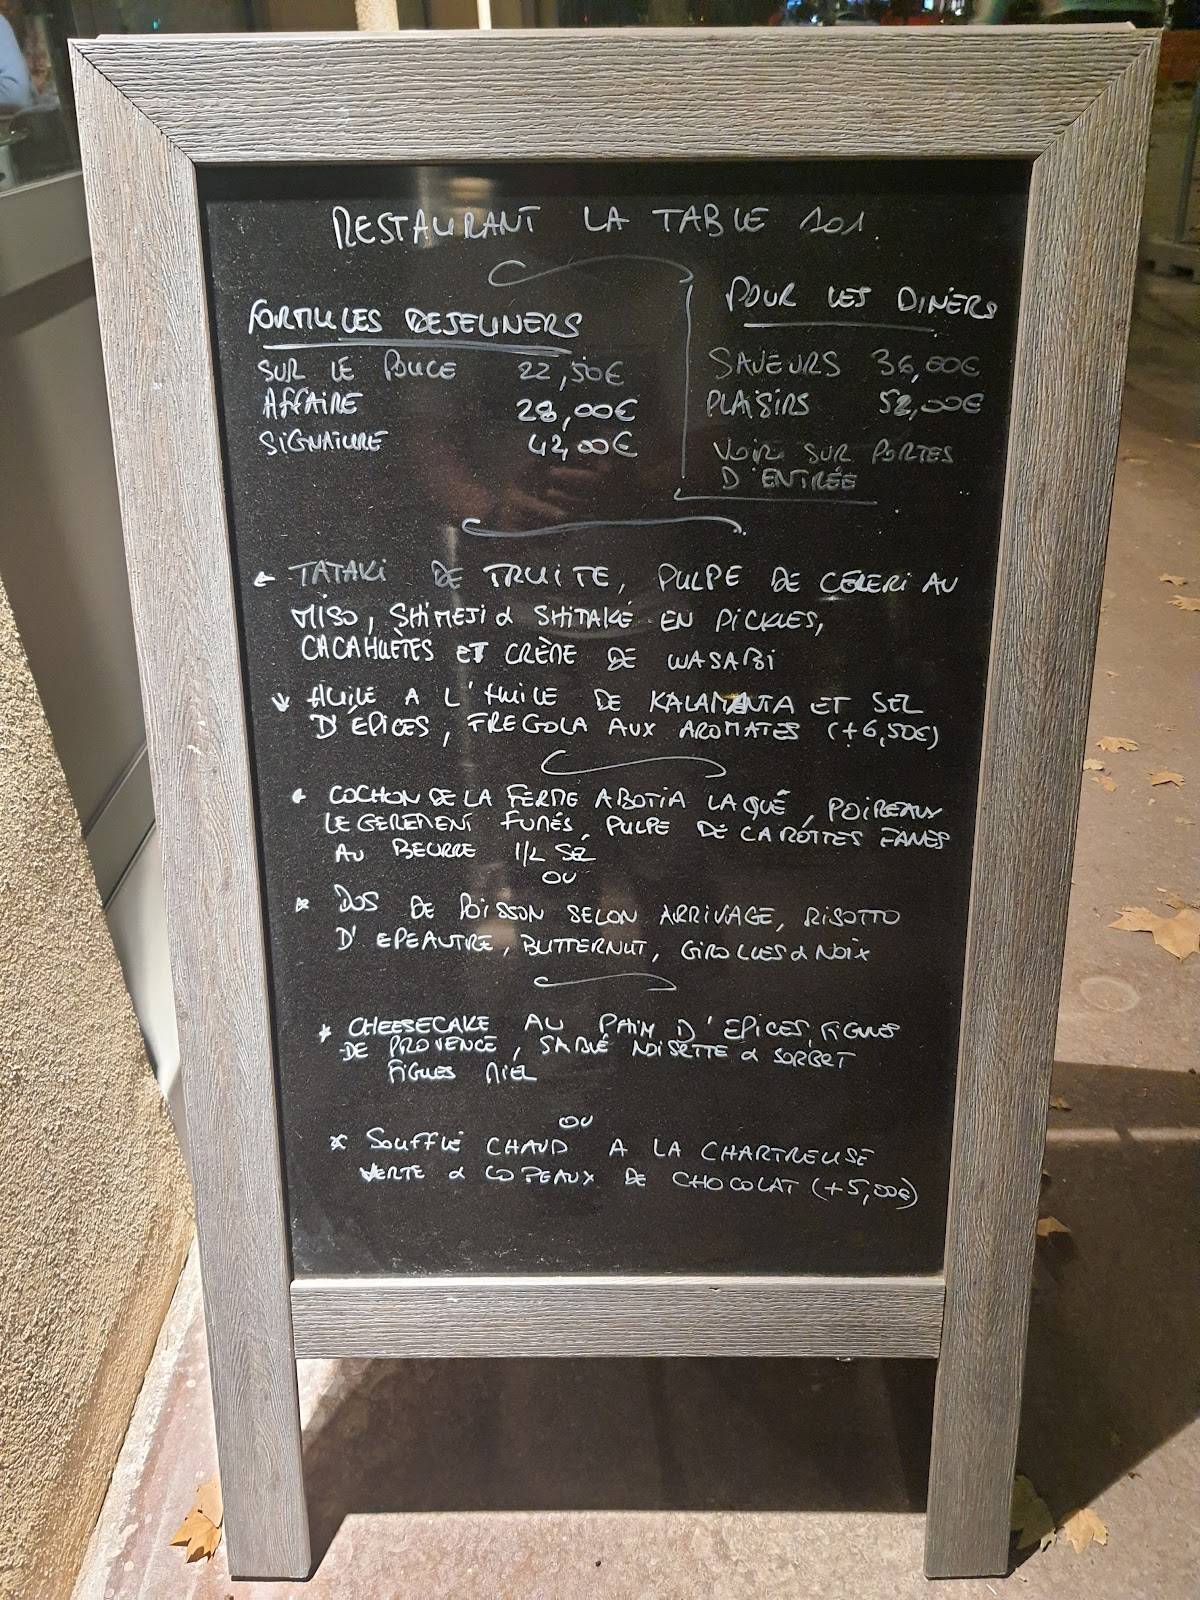 RESTAURANT LA TABLE 101
FORMULES DEJEUNERS
SUR LE POUCE 22,50€
AFFAIRE 28,00€
SIGNATURE 42,00€
POUR LES DINERS
SAVEURS 36,00€
PLAISIRS 52,00€
VOIR SUR PORTES
D'ENTRÉE
TATAKI DE TRUITE, PULPE DE CÉLERI AU
MISO, SHIMEJI & SHITAKÉ EN PICKLES,
CACAHUÈTES ET CRÈME DE WASABI
HUILE A L'HUILE DE KALAMANTA ET SEL
D'ÉPICES, FREGOLA AUX AROMATES (+6,50€)
COCHON DE LA FERME ABOTIA LAQUÉ, POIREAUX
LEGEREMENT FUMÉS, PULPE DE CAROTTES FANES
AU BEURRE 1/2 SEL
OU
DOS DE POISSON SELON ARRIVAGE, RISOTTO
D'EPEAUTRE, BUTTERNUT, GIROLLES & NOIX
CHEESECAKE AU PAIN D'EPICES, FIGUES
DE PROVENCE, SABLÉ NOISETTE & SORBET
FIGUES MIEL
OU
SOUFFLÉ CHAUD A LA CHARTREUSE
VERTE & COPEAUX DE CHOCOLAT (+5,00€)